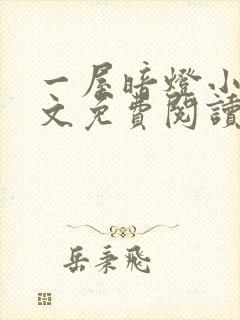 一屋暗燈小
文免費閱讀
岳秉飛